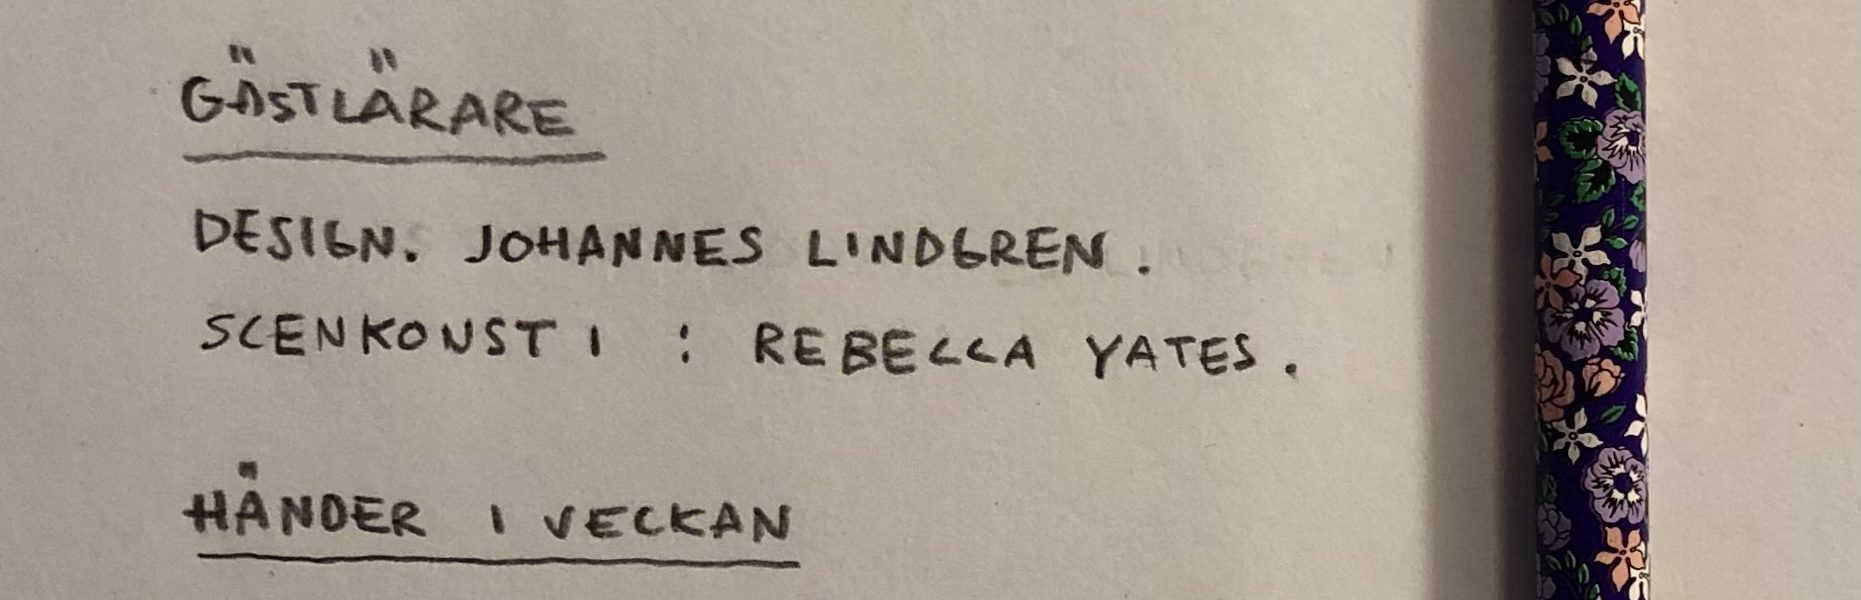 GÄSTLÄRARE
DESIGN. JOHANNES LINDGREN.
SCENKONST 1 : REBECCA YATES.
HÄNDER I VECKAN